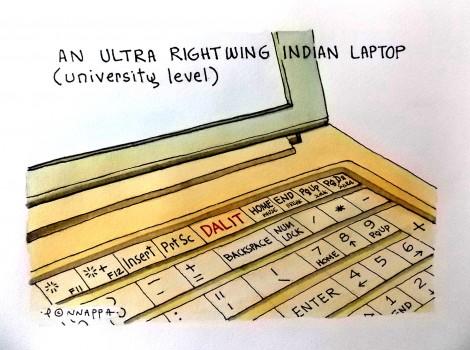 AN ULTRA RIGHTWING INDIAN LAPTOP
(university level)
F11 + F12 Insert PrtSc DALIT HOME END PgUp PgDn
- + = BACKSPACE NUM LOCK / * -
: " | 7 HOME 8 9 PgUp +
; ' \ ENTER 4 5 6
1 2
END
PONNAPPA